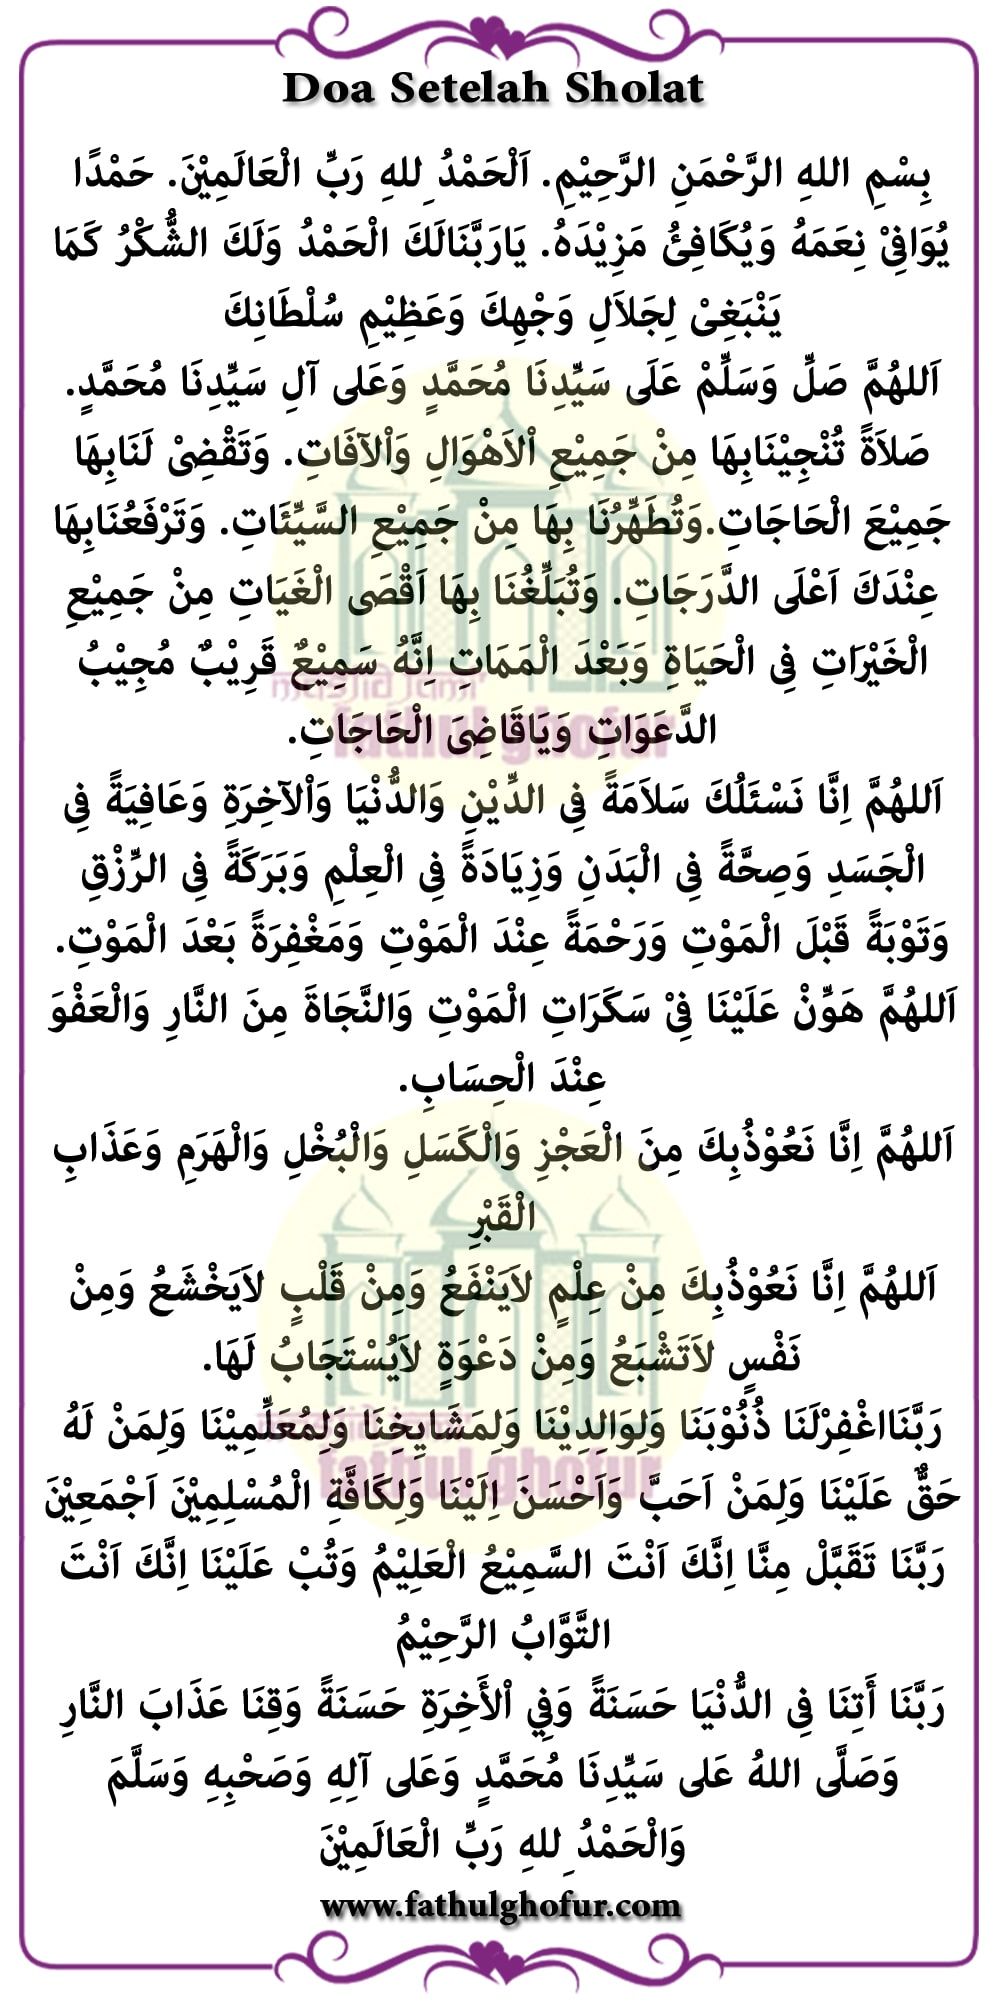 Doa Setelah Sholat
بِسْمِ اللهِ الرَّحْمَنِ الرَّحِيْمِ. اَلْحَمْدُ لِلهِ رَبِّ الْعَالَمِيْنَ. حَمْدًا
يُوَافِيْ نِعَمَهُ وَيُكَافِئُ مَزِيْدَهُ. يَارَبَّنَالَكَ الْحَمْدُ وَلَكَ الشُّكْرُ كَمَا
يَنْبَغِيْ لِجَلاَلِ وَجْهِكَ وَعَظِيْمِ سُلْطَانِكَ
اَللهُمَّ صَلِّ وَسَلِّمْ عَلَى سَيِّدِنَا مُحَمَّدٍ وَعَلى آلِ سَيِّدِنَا مُحَمَّدٍ.
صَلاَةً تُنْجِيْنَابِهَا مِنْ جَمِيْعِ اْلاَهْوَالِ وَاْلآفَاتِ. وَتَقْضِيْ لَنَابِهَا
جَمِيْعَ الْحَاجَاتِ.وَتُطَهِّرُنَا بِهَا مِنْ جَمِيْعِ السَّيِّئَاتِ. وَتَرْفَعُنَابِهَا
عِنْدَكَ اَعْلَى الدَّرَجَاتِ. وَتُبَلِّغُنَا بِهَا اَقْصَى الْغَيَاتِ مِنْ جَمِيْعِ
الْخَيْرَاتِ فِى الْحَيَاةِ وَبَعْدَ الْمَمَاتِ اِنَّهُ سَمِيْعٌ قَرِيْبٌ مُجِيْبُ
الدَّعَوَاتِ وَيَاقَاضِىَ الْحَاجَاتِ.
اَللهُمَّ اِنَّا نَسْئَلُكَ سَلاَمَةً فِى الدِّيْنِ وَالدُّنْيَا وَاْلآخِرَةِ وَعَافِيَةً فِى
الْجَسَدِ وَصِحَّةً فِى الْبَدَنِ وَزِيَادَةً فِى الْعِلْمِ وَبَرَكَةً فِى الرِّزْقِ
وَتَوْبَةً قَبْلَ الْمَوْتِ وَرَحْمَةً عِنْدَ الْمَوْتِ وَمَغْفِرَةً بَعْدَ الْمَوْتِ.
اَللهُمَّ هَوِّنْ عَلَيْنَا فِيْ سَكَرَاتِ الْمَوْتِ وَالنَّجَاةَ مِنَ النَّارِ وَالْعَفْوَ
عِنْدَ الْحِسَابِ.
اَللهُمَّ اِنَّا نَعُوْذُبِكَ مِنَ الْعَجْزِ وَالْكَسَلِ وَالْبُخْلِ وَالْهَرَمِ وَعَذَابِ
الْقَبْرِ
اَللهُمَّ اِنَّا نَعُوْذُبِكَ مِنْ عِلْمٍ لاَيَنْفَعُ وَمِنْ قَلْبٍ لاَيَخْشَعُ وَمِنْ
نَفْسٍ لاَتَشْبَعُ وَمِنْ دَعْوَةٍ لاَيُسْتَجَابُ لَهَا.
رَبَّنَااغْفِرْلَنَا ذُنُوْبَنَا وَلِوَالِدِيْنَا وَلِمَشَايِخِنَا وَلِمُعَلِّمِيْنَا وَلِمَنْ لَهُ
حَقٌّ عَلَيْنَا وَلِمَنْ اَحَبَّ وَاَحْسَنَ اِلَيْنَا وَلِكَافَّةِ الْمُسْلِمِيْنَ اَجْمَعِيْنَ
رَبَّنَا تَقَبَّلْ مِنَّا اِنَّكَ اَنْتَ السَّمِيْعُ الْعَلِيْمُ وَتُبْ عَلَيْنَا اِنَّكَ اَنْتَ
التَّوَّابُ الرَّحِيْمُ
رَبَّنَا أَتِنَا فِى الدُّنْيَا حَسَنَةً وَفِي اْلأَخِرَةِ حَسَنَةً وَقِنَا عَذَابَ النَّارِ
وَصَلَّى اللهُ عَلى سَيِّدِنَا مُحَمَّدٍ وَعَلى آلِهِ وَصَحْبِهِ وَسَلَّمَ
وَالْحَمْدُ لِلهِ رَبِّ الْعَالَمِيْنَ
www.fathulghofur.com
masjid jami'
fathul ghofur
masjid jami'
fathul ghofur